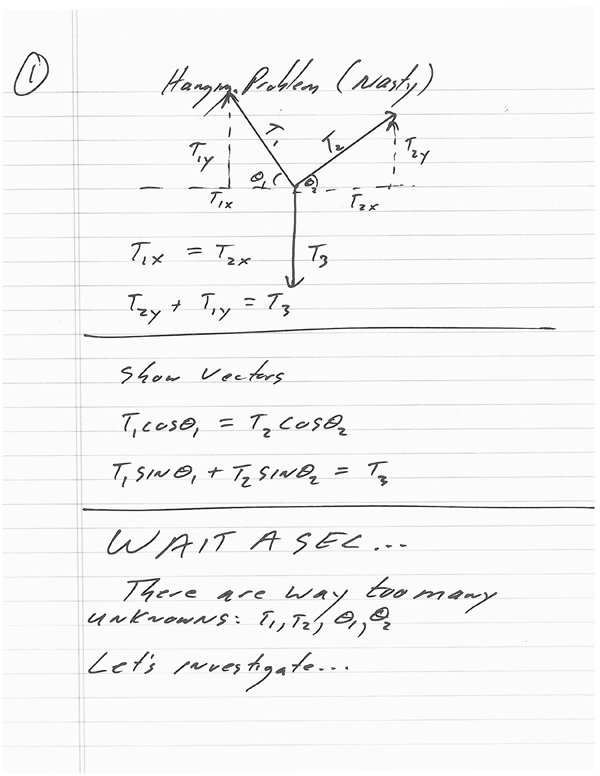 1
Hanging Problem (Nasty)
T₁
T₂
T₁y
T₂y
θ₁
θ₂
T₁x
T₂x
T₁x = T₂x
T₃
T₂y + T₁y = T₃
Show Vectors
T₁cosθ₁ = T₂cosθ₂
T₁sinθ₁ + T₂sinθ₂ = T₃
WAIT A SEC...
There are way too many
unknowns: T₁, T₂, θ₁, θ₂
Let's investigate...